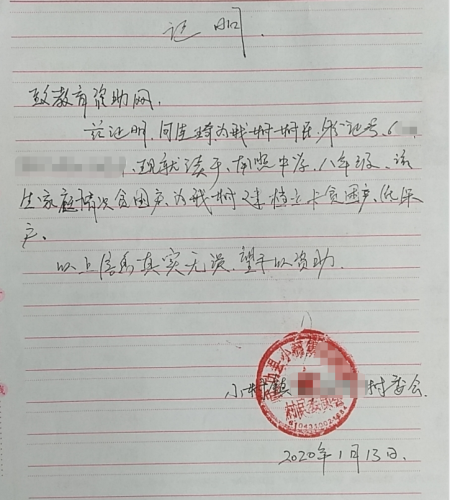 证明.
致教育资助网.
兹证明,何佳琦为我村村民,身份证号,(
),现就读于,南照中学,八年级、该
生家庭情况贫困户、为我村建档立卡贫困户、低保
户.
以上信息真实无误,望予以资助.
小 镇 村委会.
村民委员会
2020年1月13日.